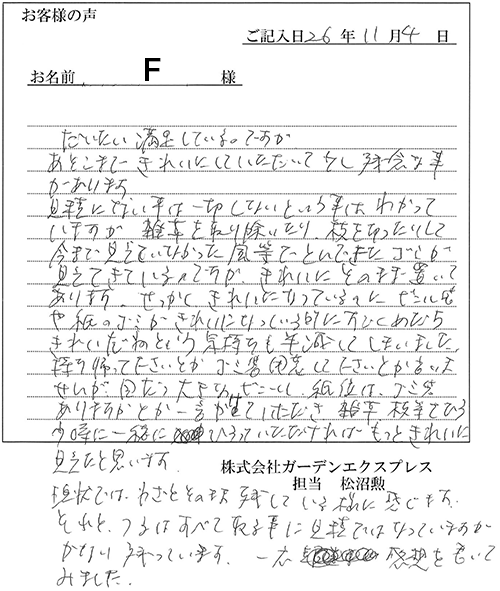 お客様の声
ご記入日 26 年 11 月 4 日
お名前 F 様
だいたい満足しているのですが
あそこまできれいにしていただいて少し残念な事
があります
見積にない事は一切しないという事は、わかって
いますが 雑草を取り除いたり 枝を切ったりして
今まで見えていなかった風等でとんできたゴミが
見えてきているのですが、きれいにそのまま置いて
あります。せっかくきれいになっているのにビニール
や紙のゴミがきれいになっている所に
きれいだねという気持ちも半減してしまいました
持ち帰ってくださいとか ゴミ袋用意してくださいとか言いま
せんが 目だつ大きな ビニール 紙位は、ゴミ袋
ありますかとか一言かけていただき 雑草 枝等ひろ
う時に一緒に ひろっていただければもっときれいに
見えたと思います。
株式会社ガーデンエクスプレス
担当 松沼勲
現状では、わざとそのまま残している様に感じます。
それと、つるはすべて取る事に見積ではなっていますが
かなり残っています。一応 感想を書いて
みました。